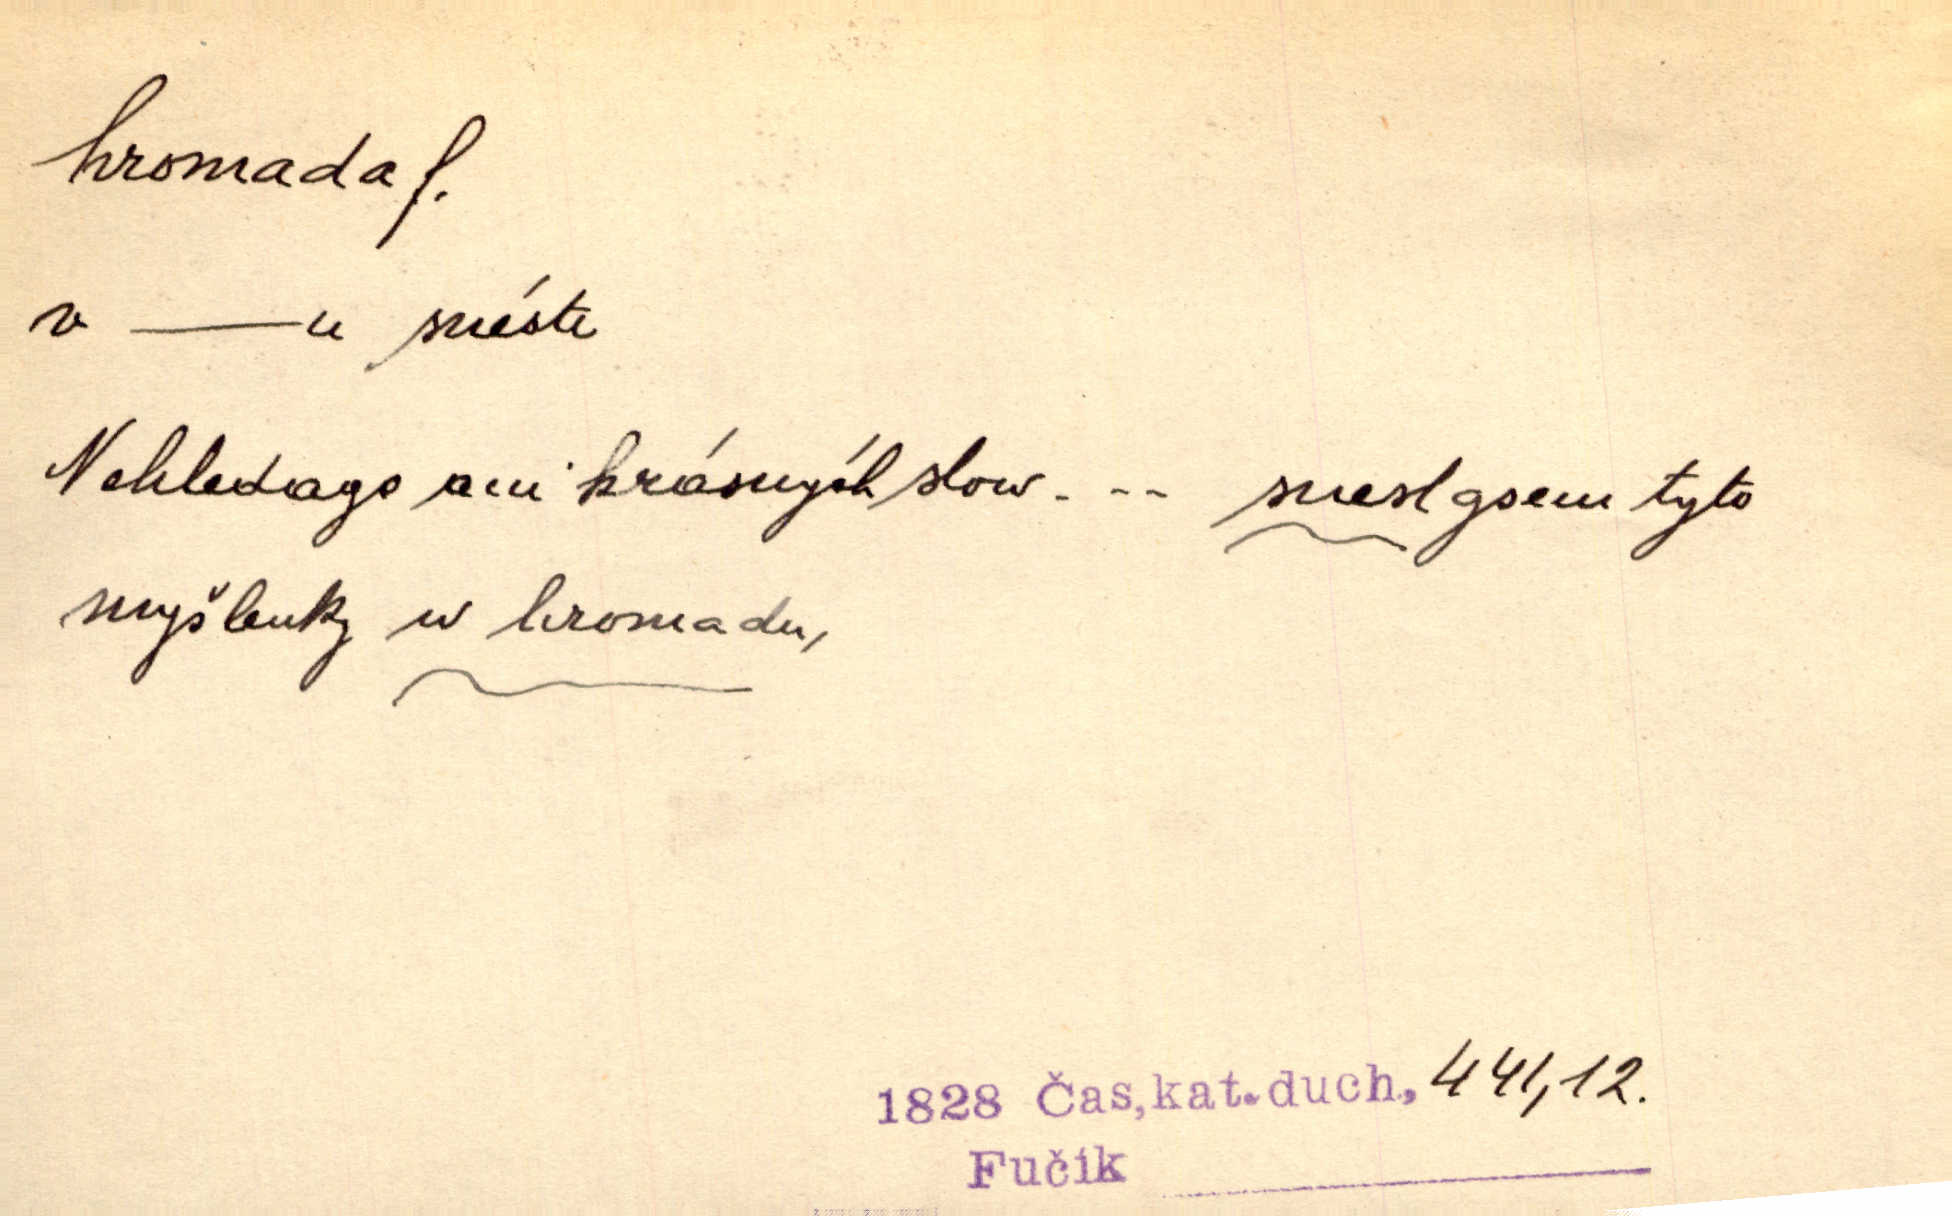 hromada f.
v —u snésti
Nehledage ani krásných slow - - - snesl gsem tyto
myšlenky w hromadu,
1828 Čas,kat.duch., 441,12.
Fučík